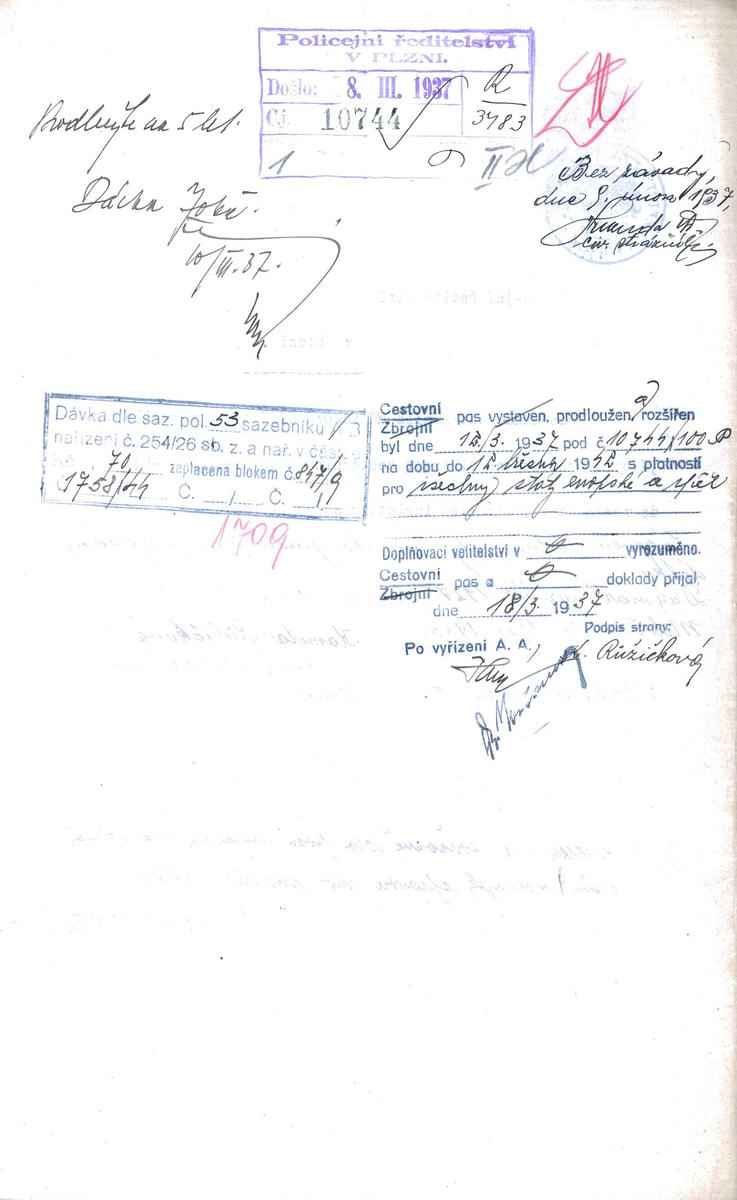 Policejní ředitelství
V PLZNI.
Došlo: 8. III. 1937
Čj. 10744
R
3483
1
II
na 5 let.
Dávka
10/III.37.
Bez závady,
dne 9. února 1937,
Dávka dle saz. pol. 53 sazebníku
nařízení č. 254/26 sb. z. a nař. v části
70 zaplacena blokem č. 847/9
1758/44 Č. / Č. /
1709
Cestovní
Zbrojní pas vystaven, prodloužen, a rozšířen
byl dne 12./3. 1937 pod č 10744/100 P
na dobu do 12. března 1942 s platností
pro všechny státy evropské a zpět
Doplňovací velitelství v vyrozuměno.
Cestovní
Zbrojní pas a doklady přijal
dne 18/3. 1937
Podpis strany:
Po vyřízení A. A.,
Růžičková